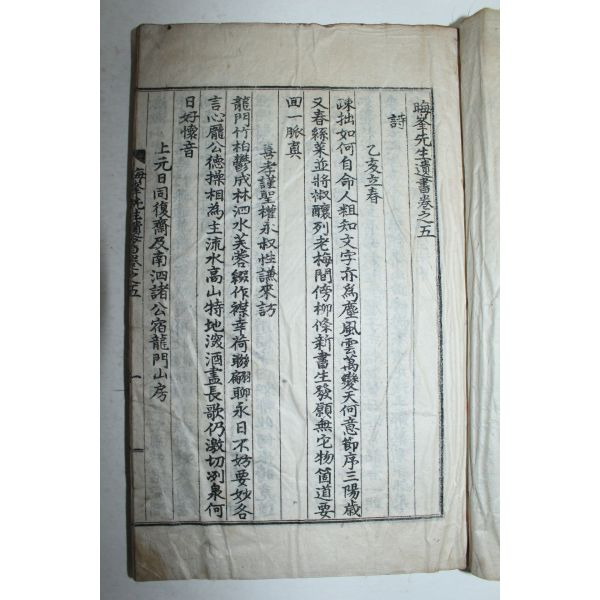 晦峯先生遺書卷之五
詩
乙亥立春
疎拙如何自命人粗知文字亦爲塵風雲萬變天何意節序三陽歲
又春絲菜並將淑釀列老梅間傍柳條新書生發願無它物箇道要
回一脈眞
喜孝謹聖權永叔性謙來訪
龍門竹柏鬱成林泗水芙蓉綴作襟幸荷聯翩聊永日不妨要妙各
言心龐公德操相為主流水高山特地深酒盡長歌仍激切冽泉何
日好懷音
上元日同復齋及南泗諸公宿龍門山房
晦峯先生遺書卷之五 一